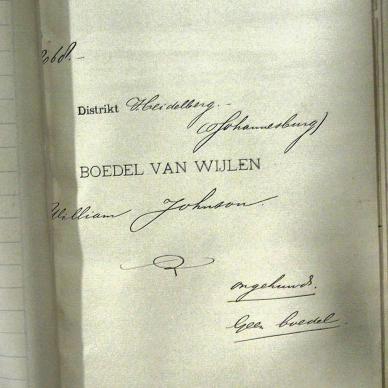 2068.-
Distrikt Heidelberg.-
(Johannesburg)
BOEDEL VAN WIJLEN
William Johnson.
ongehuwd.
Geen boedel.